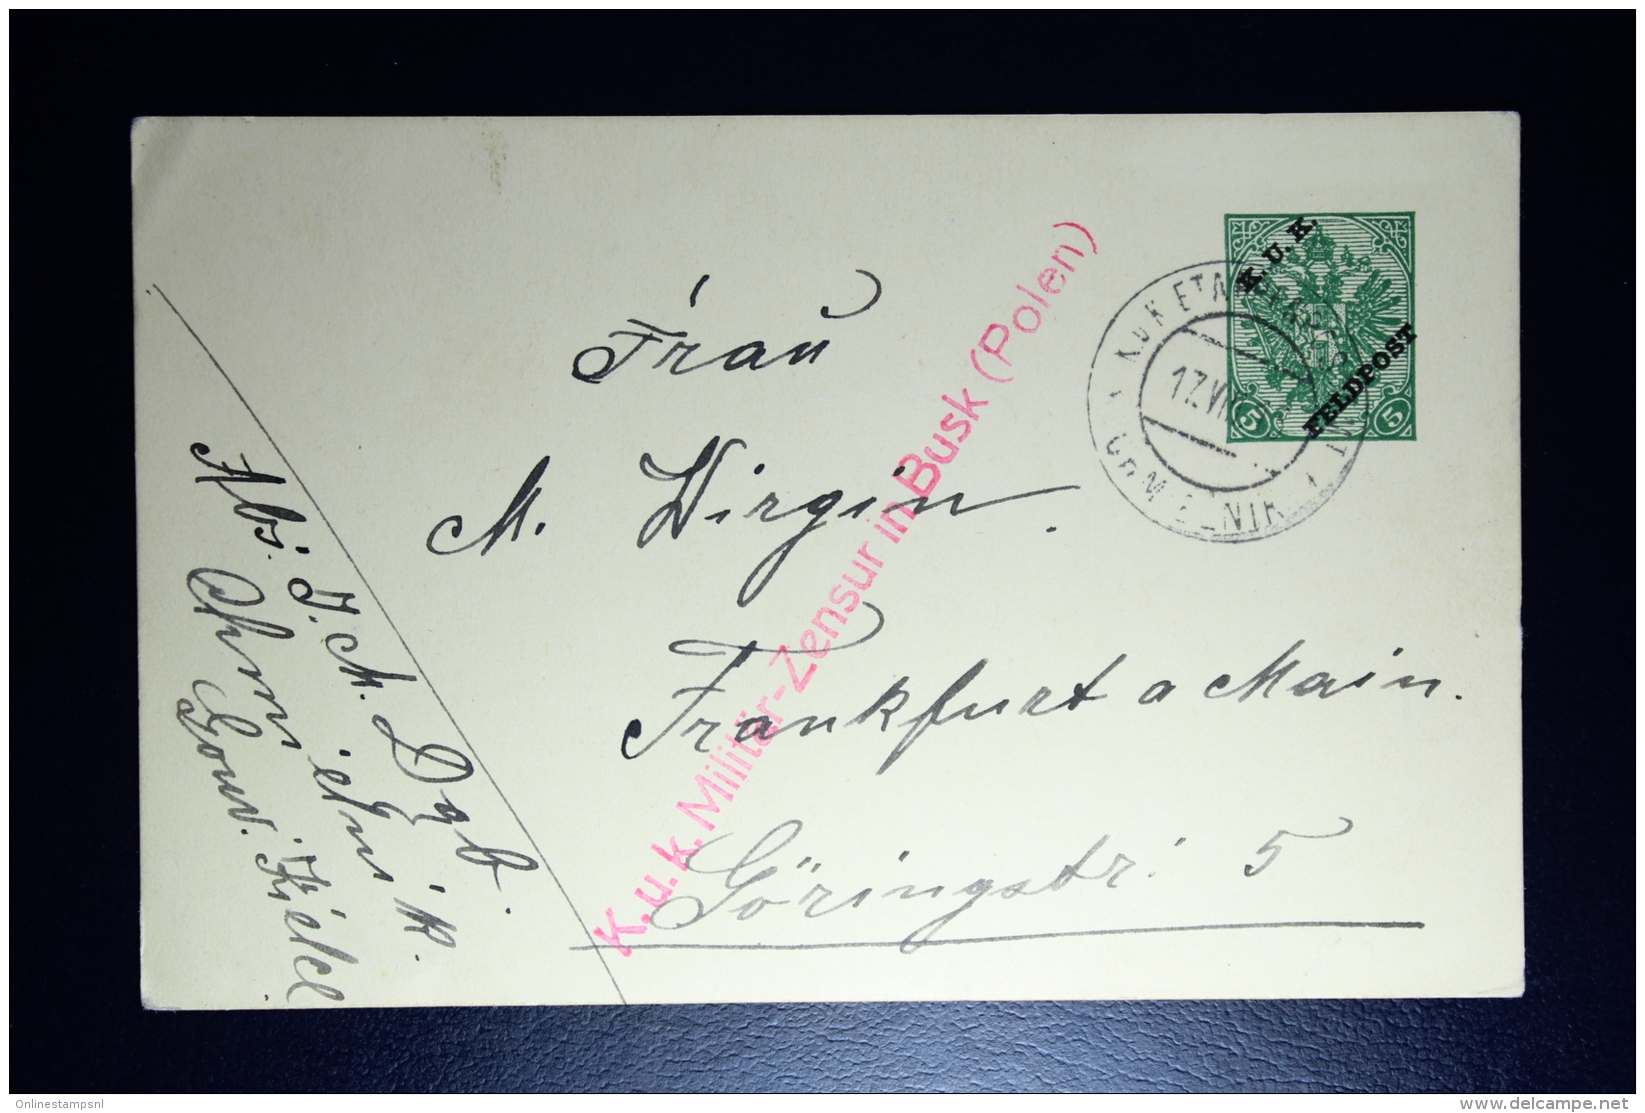 K.U.K.
FELDPOST
5 5
K.u.K. ETA
17.VI
K.u.k. Militär-Zensur in Busk (Polen)
Frau
M. Wirgin.
Frankfurt a Main.
Göringstr. 5
Abs. J. M. Dgb.
Chmielnik.
Gouv. Kielce
Onlinestampsnl
delcampe.net